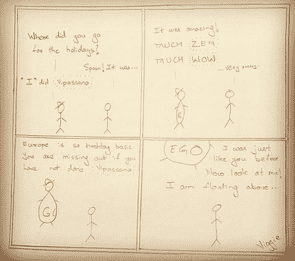 Where did you go
for the holidays?
Spain! It was...
"I" did Vipassana
It was amazing!
MUCH ZEN
MUCH WOW
...very nice.
G
Europe is so holiday basic
You are missing out if you
have not done Vipassana!
G
EGO
I was just
like you before
Now look at me!
I am floating above...